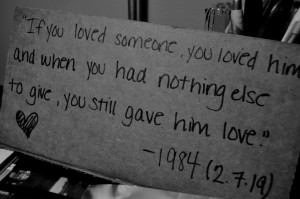 "If you loved someone, you loved him
and when you had nothing else
to give, you still gave him love."
-1984 (2.7.19)